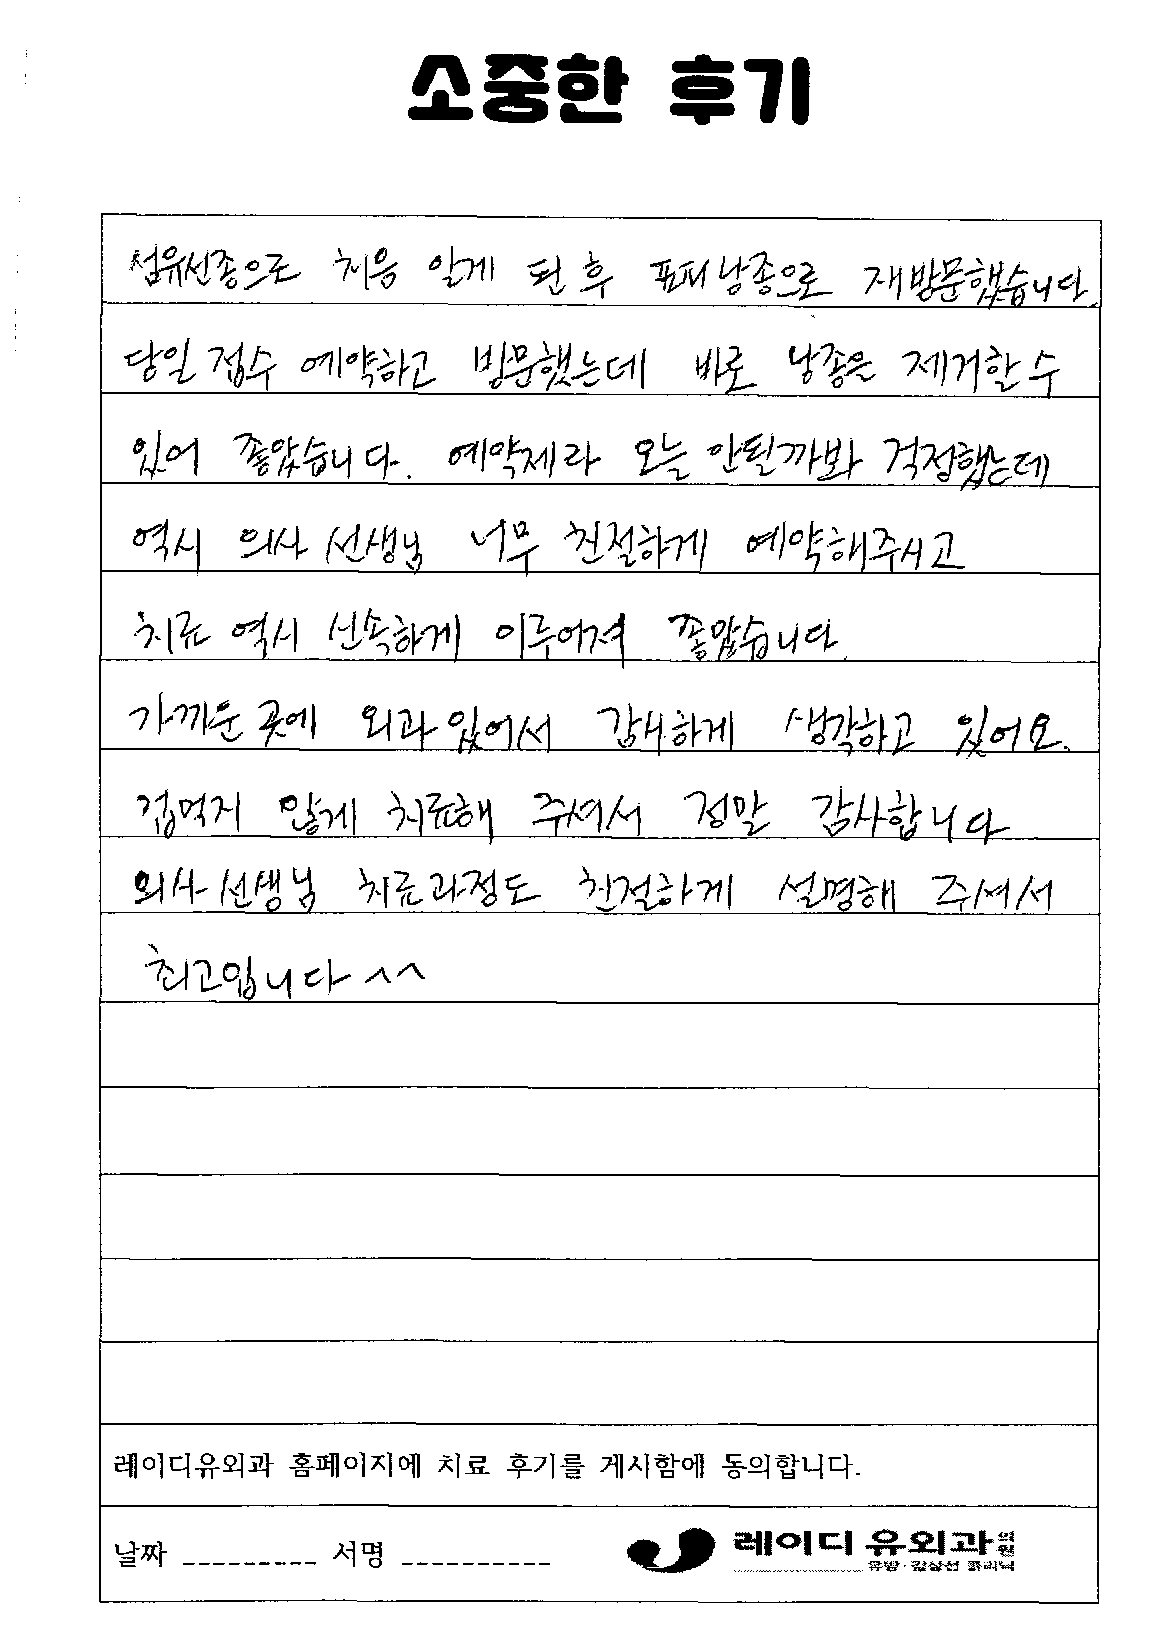 소중한 후기
섬유선종으로 처음 알게 된 후 표피낭종으로 재방문했습니다.
당일 접수 예약하고 방문했는데 바로 낭종은 제거할 수
있어 좋았습니다. 예약제라 오늘 안될까봐 걱정했는데
역시 의사 선생님 너무 친절하게 예약해주시고
치료 역시 신속하게 이루어져 좋았습니다.
가까운 곳에 외과 있어서 감사하게 생각하고 있어요.
겁먹지 않게 치료해 주셔서 정말 감사합니다
의사 선생님 치료과정도 친절하게 설명해 주셔서
최고입니다 ^^
레이디유외과 홈페이지에 치료 후기를 게시함에 동의합니다.
날짜 --------- 서명 ----------
레이디 유외과의원
유방·갑상선 클리닉